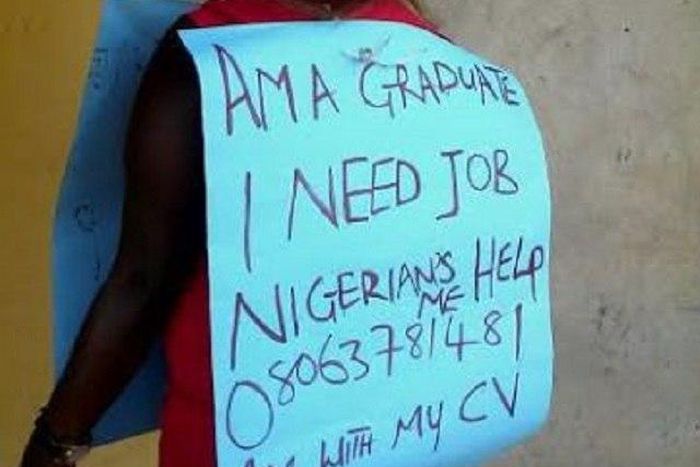 AM A GRADUATE
I NEED JOB
NIGERIAN'S HELP
ME
08063781481
WITH MY CV